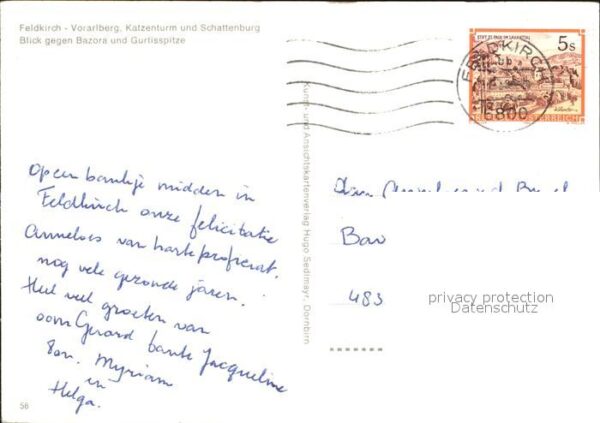 Feldkirch - Vorarlberg, Katzenturm und Schattenburg
Blick gegen Bazora und Gurtisspitze
Op een bankje midden in
Feldkirch onze felicitatie
Annelies van harte proficiat.
nog vele gezonde jaren.
Heel veel groeten van
oom Gerard tante Jacqueline
Ton. Myriam
en
Helga.
56
Kunst- und Ansichtskartenverlag Hugo Seidlmayr, Dornbirn
FELDKIRCH
6800
STIFT ST. PAUL IM LAVANTTAL
5 S
REPUBLIK ÖSTERREICH
Bav
483
privacy protection
Datenschutz